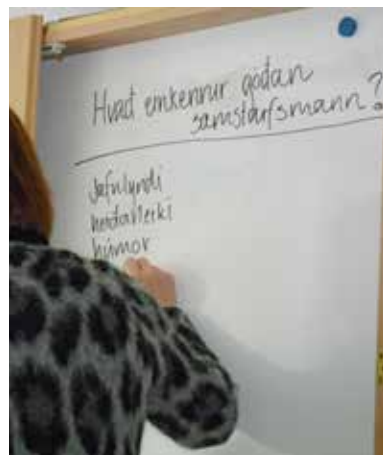 Hvað einkennir góðan
samstarfsmann?
Jafnlyndi
heiðarleiki
húmor